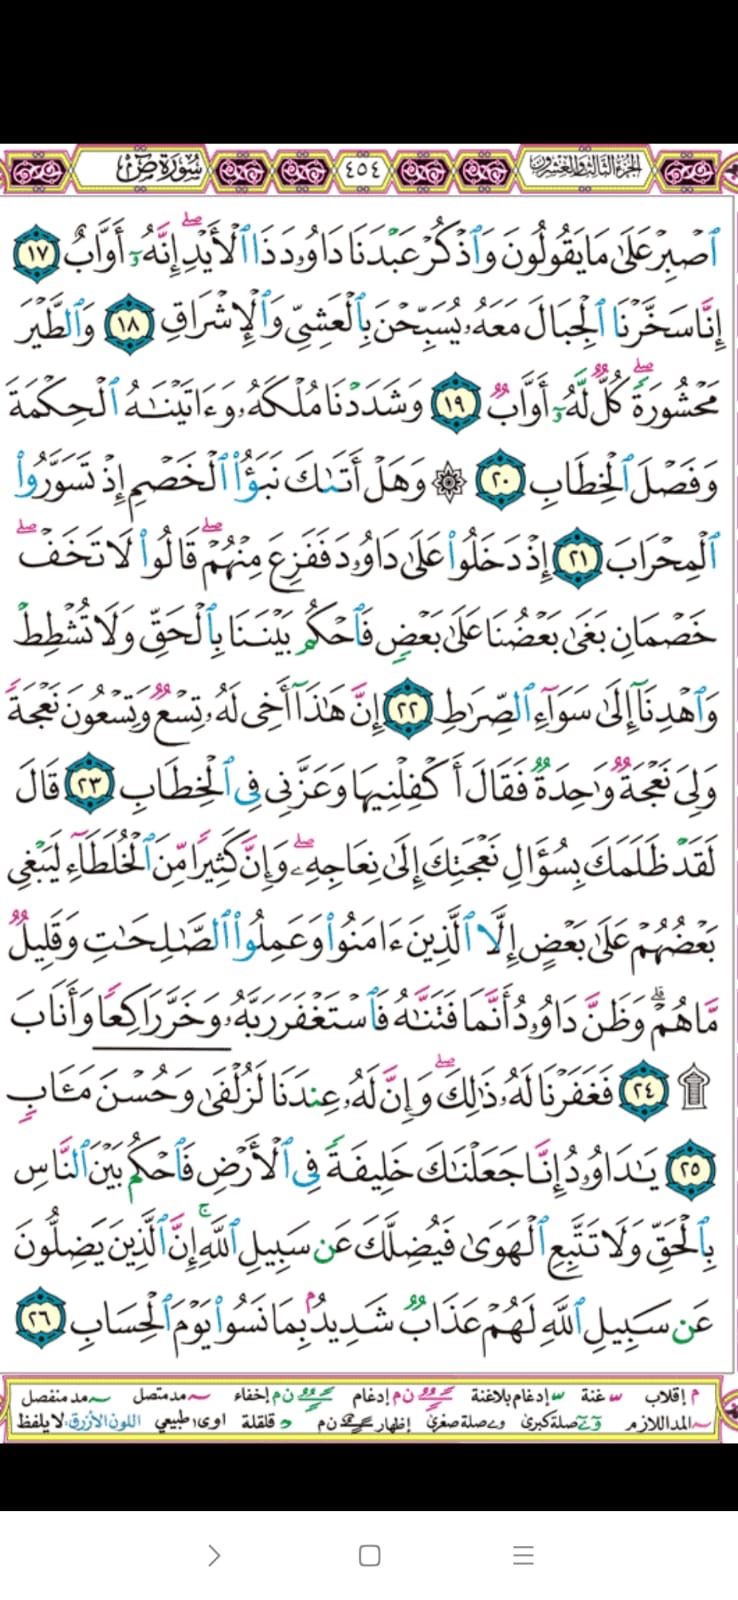 الجزء الثالث والعشرون ٤٥٤ سورة ص
ٱصْبِرْ عَلَىٰ مَا يَقُولُونَ وَٱذْكُرْ عَبْدَنَا دَاوُۥدَ ذَا ٱلْأَيْدِ ۖ إِنَّهُۥٓ أَوَّابٌ ١٧
إِنَّا سَخَّرْنَا ٱلْجِبَالَ مَعَهُۥ يُسَبِّحْنَ بِٱلْعَشِىِّ وَٱلْإِشْرَاقِ ١٨ وَٱلطَّيْرَ
مَحْشُورَةً ۖ كُلٌّ لَّهُۥٓ أَوَّابٌ ١٩ وَشَدَدْنَا مُلْكَهُۥ وَءَاتَيْنَـٰهُ ٱلْحِكْمَةَ
وَفَصْلَ ٱلْخِطَابِ ٢٠ ۞ وَهَلْ أَتَىٰكَ نَبَؤُا۟ ٱلْخَصْمِ إِذْ تَسَوَّرُوا۟
ٱلْمِحْرَابَ ٢١ إِذْ دَخَلُوا۟ عَلَىٰ دَاوُۥدَ فَفَزِعَ مِنْهُمْ ۖ قَالُوا۟ لَا تَخَفْ ۖ
خَصْمَانِ بَغَىٰ بَعْضُنَا عَلَىٰ بَعْضٍ فَٱحْكُم بَيْنَنَا بِٱلْحَقِّ وَلَا تُشْطِطْ
وَٱهْدِنَآ إِلَىٰ سَوَآءِ ٱلصِّرَٰطِ ٢٢ إِنَّ هَـٰذَآ أَخِى لَهُۥ تِسْعٌ وَتِسْعُونَ نَعْجَةً
وَلِىَ نَعْجَةٌ وَٰحِدَةٌ فَقَالَ أَكْفِلْنِيهَا وَعَزَّنِى فِى ٱلْخِطَابِ ٢٣ قَالَ
لَقَدْ ظَلَمَكَ بِسُؤَالِ نَعْجَتِكَ إِلَىٰ نِعَاجِهِۦ ۖ وَإِنَّ كَثِيرًا مِّنَ ٱلْخُلَطَآءِ لَيَبْغِى
بَعْضُهُمْ عَلَىٰ بَعْضٍ إِلَّا ٱلَّذِينَ ءَامَنُوا۟ وَعَمِلُوا۟ ٱلصَّـٰلِحَـٰتِ وَقَلِيلٌ
مَّا هُمْ ۗ وَظَنَّ دَاوُۥدُ أَنَّمَا فَتَنَّـٰهُ فَٱسْتَغْفَرَ رَبَّهُۥ وَخَرَّ رَاكِعًا وَأَنَابَ
۩ ٢٤ فَغَفَرْنَا لَهُۥ ذَٰلِكَ ۖ وَإِنَّ لَهُۥ عِندَنَا لَزُلْفَىٰ وَحُسْنَ مَـَٔابٍ
٢٥ يَـٰدَاوُۥدُ إِنَّا جَعَلْنَـٰكَ خَلِيفَةً فِى ٱلْأَرْضِ فَٱحْكُم بَيْنَ ٱلنَّاسِ
بِٱلْحَقِّ وَلَا تَتَّبِعِ ٱلْهَوَىٰ فَيُضِلَّكَ عَن سَبِيلِ ٱللَّهِ ۚ إِنَّ ٱلَّذِينَ يَضِلُّونَ
عَن سَبِيلِ ٱللَّهِ لَهُمْ عَذَابٌ شَدِيدٌۢ بِمَا نَسُوا۟ يَوْمَ ٱلْحِسَابِ ٢٦
م إقلاب غنة إدغام بلاغنة ن م إدغام ن م إخفاء مد متصل مد منفصل
المد اللازم صلة كبرى صلة صغرى إظهار ن م قلقلة اوى طبيعي اللون الأزرق: لا يلفظ